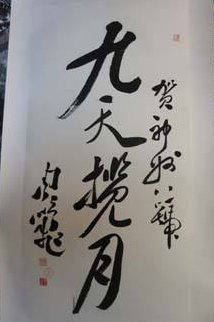 贺神舟八号
九天揽月